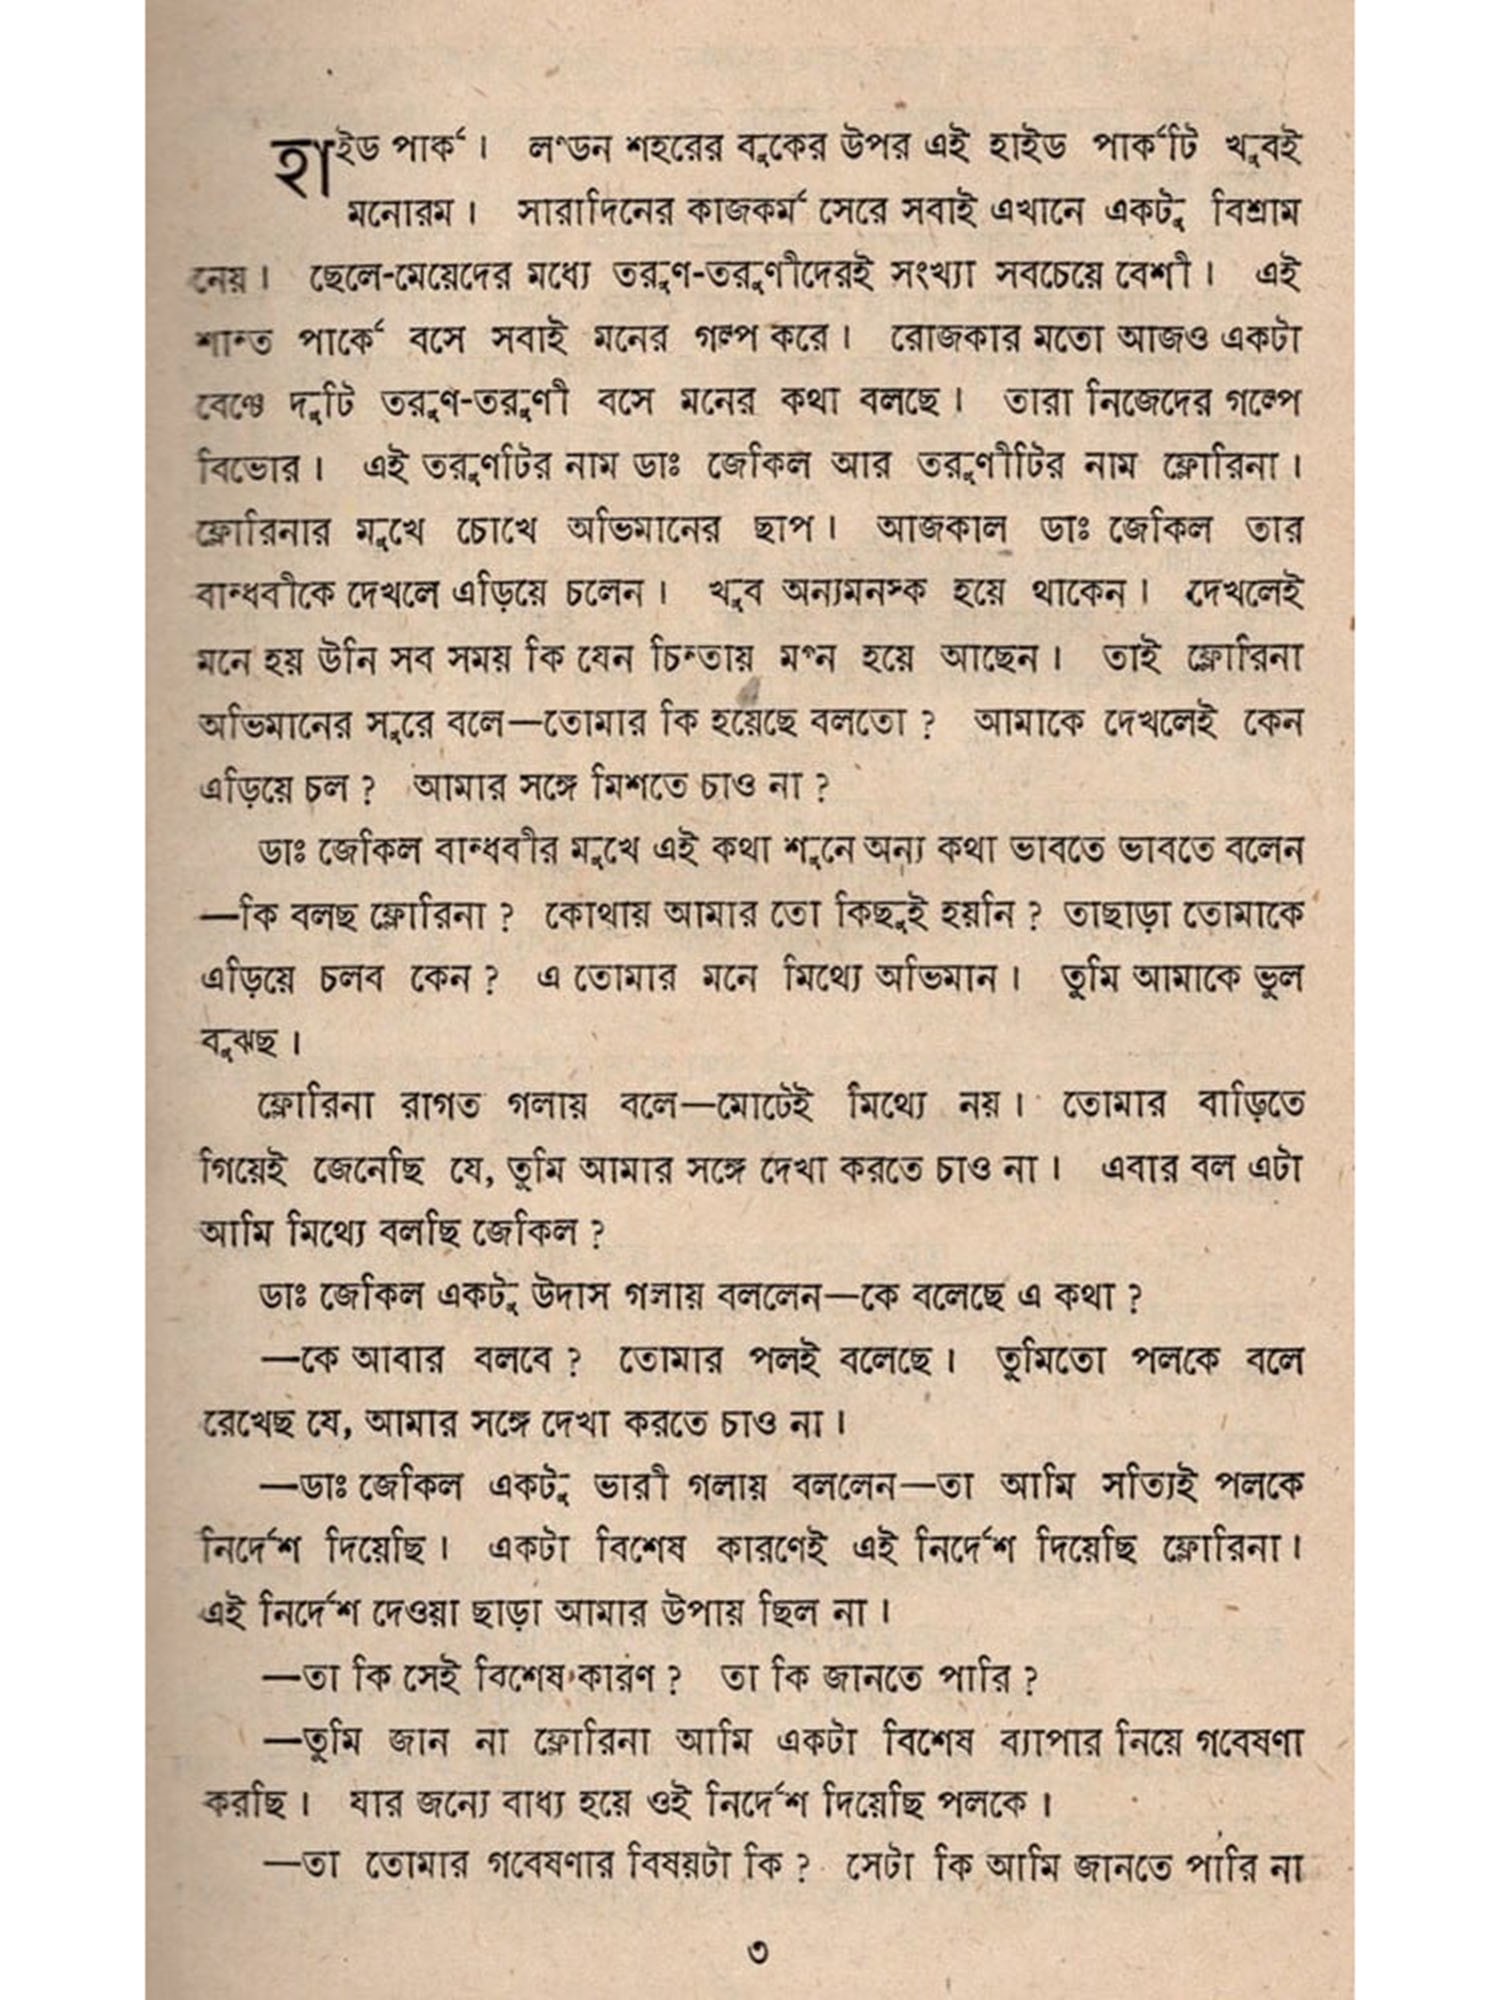 হাইড পার্ক। লণ্ডন শহরের বুকের উপর এই হাইড পার্কটি খুবই
মনোরম। সারাদিনের কাজকর্ম সেরে সবাই এখানে একটু বিশ্রাম
নেয়। ছেলে-মেয়েদের মধ্যে তরুণ-তরুণীদেরই সংখ্যা সবচেয়ে বেশী। এই
শান্ত পার্কে বসে সবাই মনের গল্প করে। রোজকার মতো আজও একটা
বেঞ্চে দুটি তরুণ-তরুণী বসে মনের কথা বলছে। তারা নিজেদের গল্পে
বিভোর। এই তরুণটির নাম ডাঃ জেকিল আর তরুণীটির নাম ফ্লোরিনা।
ফ্লোরিনার মুখে চোখে অভিমানের ছাপ। আজকাল ডাঃ জেকিল তার
বান্ধবীকে দেখলে এড়িয়ে চলেন। খুব অন্যমনস্ক হয়ে থাকেন। দেখলেই
মনে হয় উনি সব সময় কি যেন চিন্তায় মগ্ন হয়ে আছেন। তাই ফ্লোরিনা
অভিমানের সুরে বলে—তোমার কি হয়েছে বলতো? আমাকে দেখলেই কেন
এড়িয়ে চল? আমার সঙ্গে মিশতে চাও না?
ডাঃ জেকিল বান্ধবীর মুখে এই কথা শুনে অন্য কথা ভাবতে ভাবতে বলেন
—কি বলছ ফ্লোরিনা? কোথায় আমার তো কিছুই হয়নি? তাছাড়া তোমাকে
এড়িয়ে চলব কেন? এ তোমার মনে মিথ্যে অভিমান। তুমি আমাকে ভুল
বুঝছ।
ফ্লোরিনা রাগত গলায় বলে—মোটেই মিথ্যে নয়। তোমার বাড়িতে
গিয়েই জেনেছি যে, তুমি আমার সঙ্গে দেখা করতে চাও না। এবার বল এটা
আমি মিথ্যে বলছি জেকিল?
ডাঃ জেকিল একটু উদাস গলায় বললেন—কে বলেছে এ কথা?
—কে আবার বলবে? তোমার পলই বলেছে। তুমিতো পলকে বলে
রেখেছ যে, আমার সঙ্গে দেখা করতে চাও না।
—ডাঃ জেকিল একটু ভারী গলায় বললেন—তা আমি সত্যিই পলকে
নির্দেশ দিয়েছি। একটা বিশেষ কারণেই এই নির্দেশ দিয়েছি ফ্লোরিনা।
এই নির্দেশ দেওয়া ছাড়া আমার উপায় ছিল না।
—তা কি সেই বিশেষ কারণ? তা কি জানতে পারি?
—তুমি জান না ফ্লোরিনা আমি একটা বিশেষ ব্যাপার নিয়ে গবেষণা
করছি। যার জন্যে বাধ্য হয়ে ওই নির্দেশ দিয়েছি পলকে।
—তা তোমার গবেষণার বিষয়টা কি? সেটা কি আমি জানতে পারি না
৩